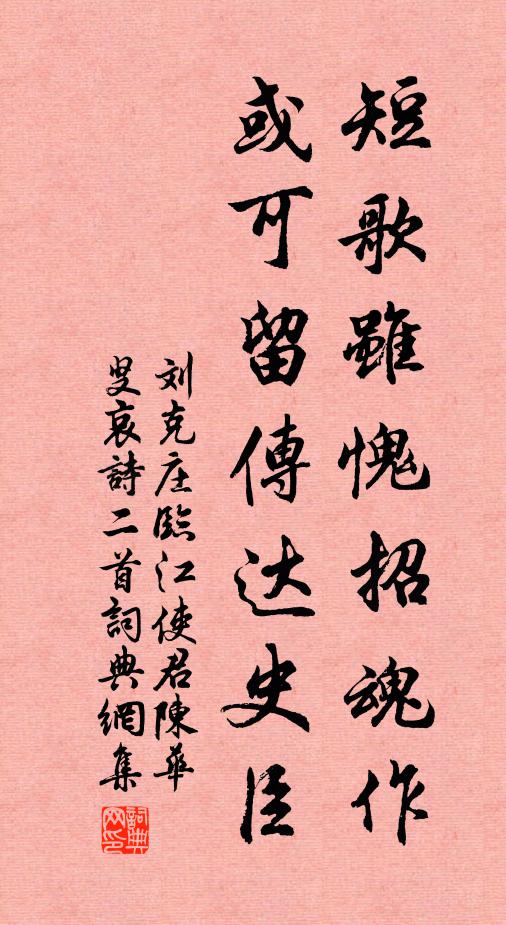 短歌雖愧招魂作
或可留傳达史臣
刘克庄臨江使君陳華
叟哀詩二首詞典網集
詞典
网印